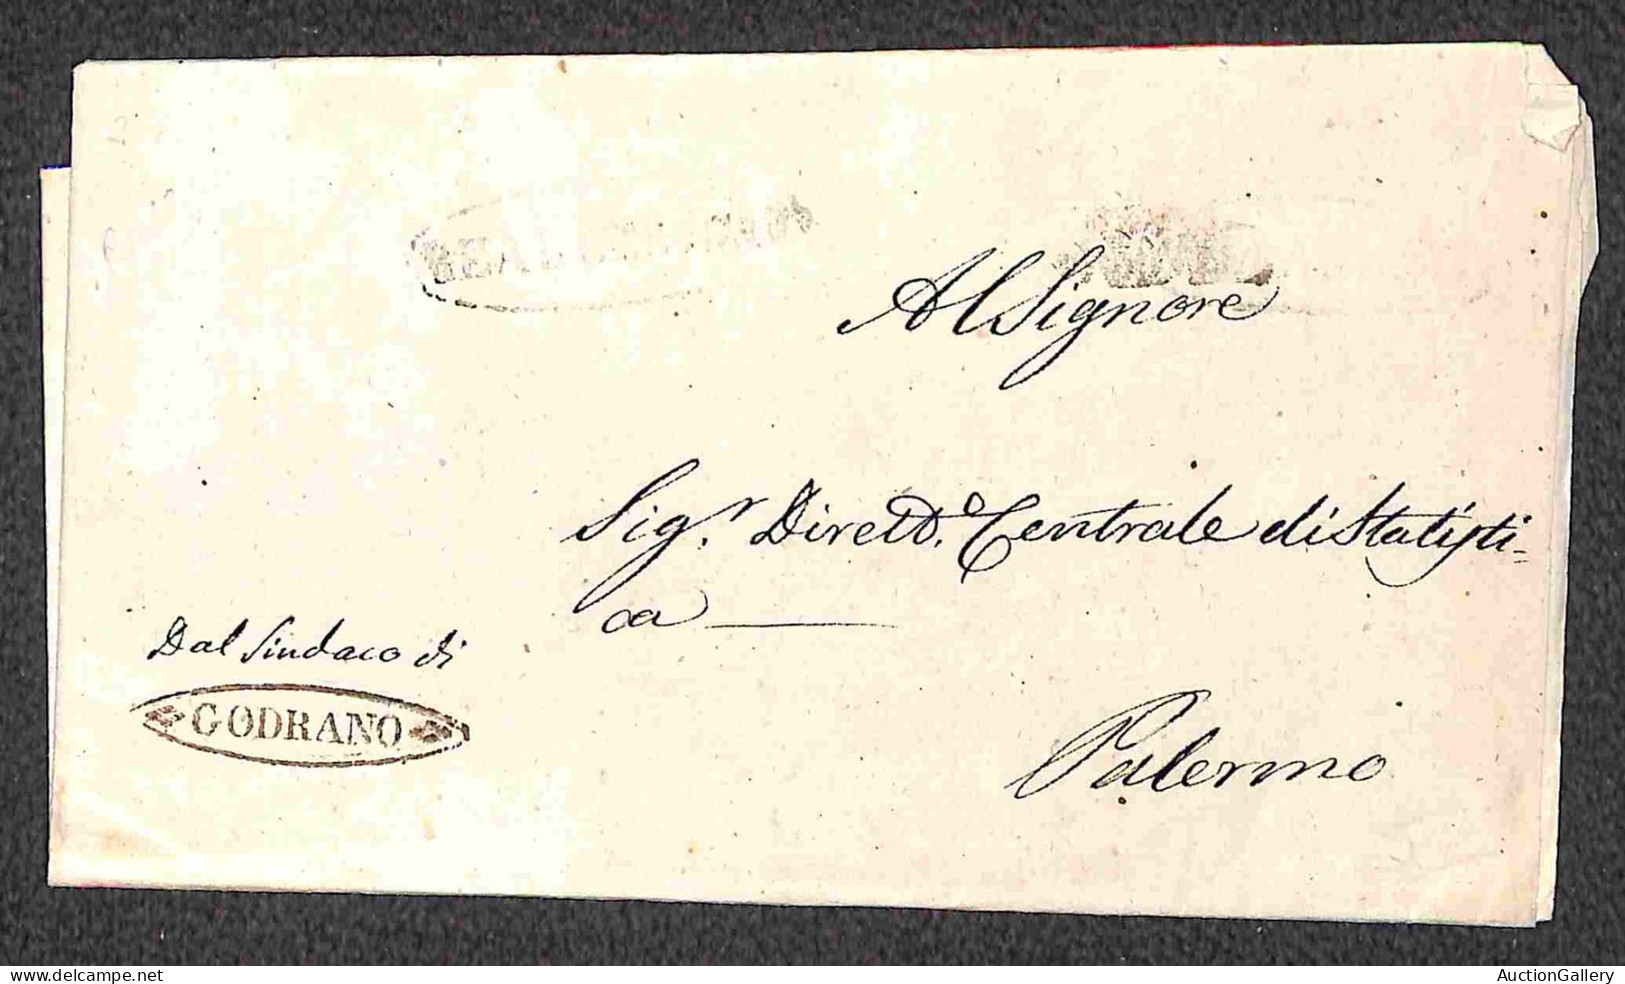 Al Signore
Sig.r Dirett.e Centrale di Statisti=
ca
Dal Sindaco di
GODRANO
Palermo
www.delcampe.net
AuctionGallery